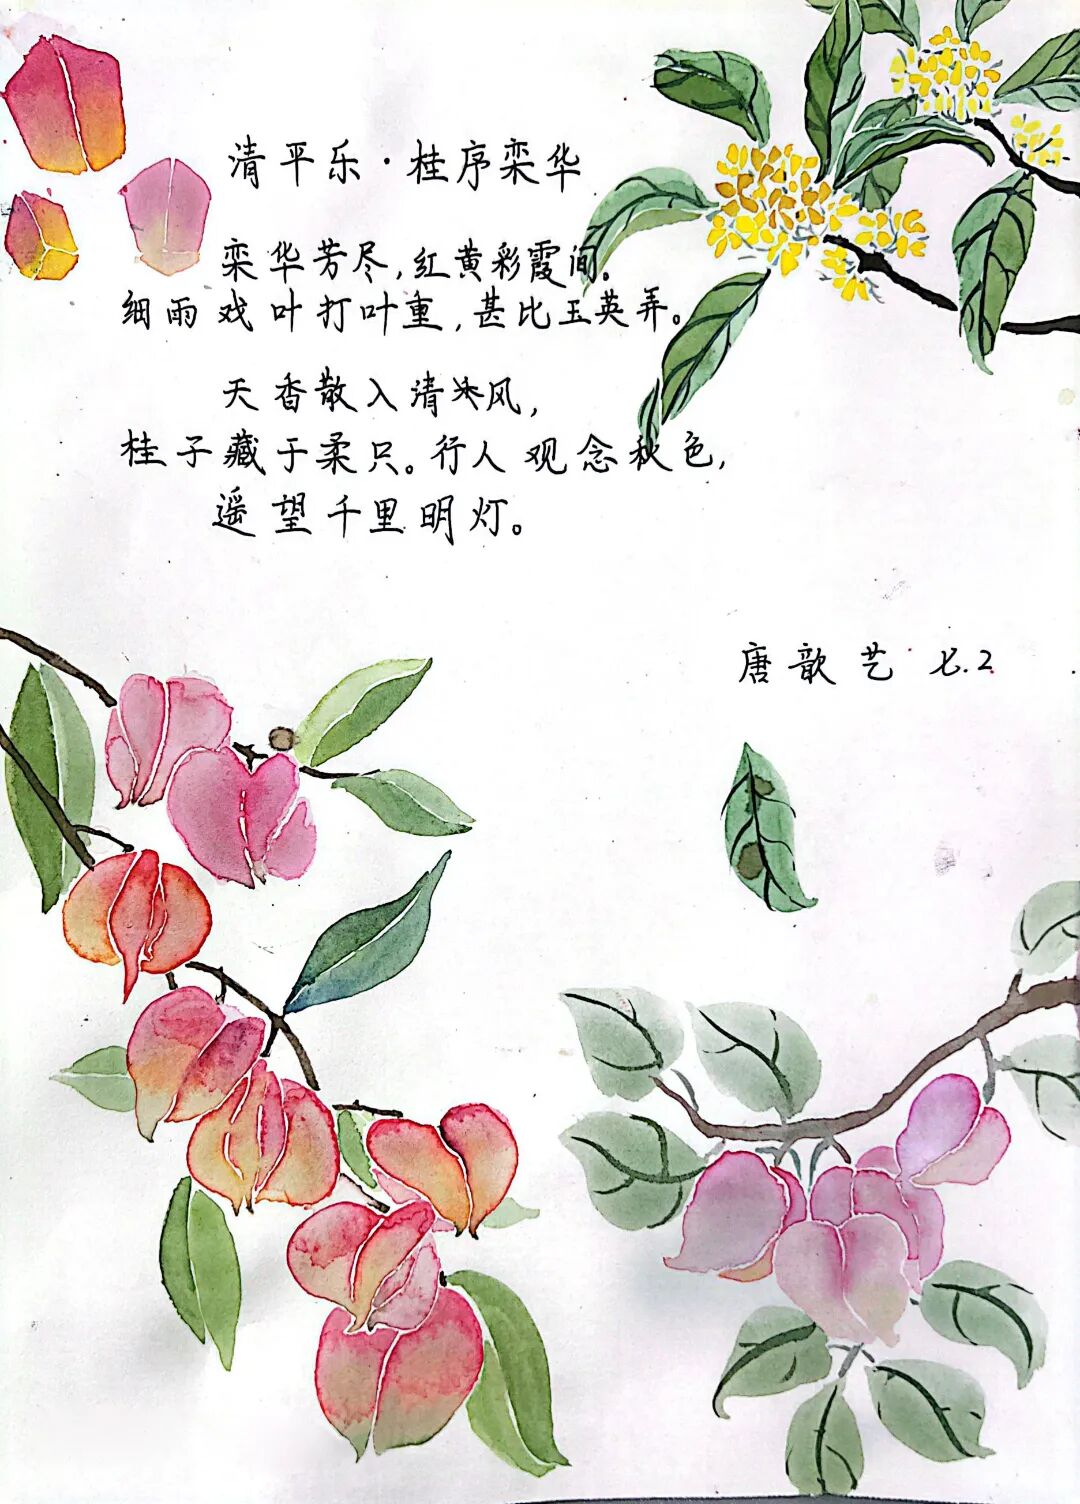 清平乐·桂序栾华
栾华芳尽,红黄彩霞间。
细雨戏叶打叶重,甚比玉英弄。
天香散入清风,
桂子藏于柔只。行人观念秋色,
遥望千里明灯。
唐歆艺 七.2